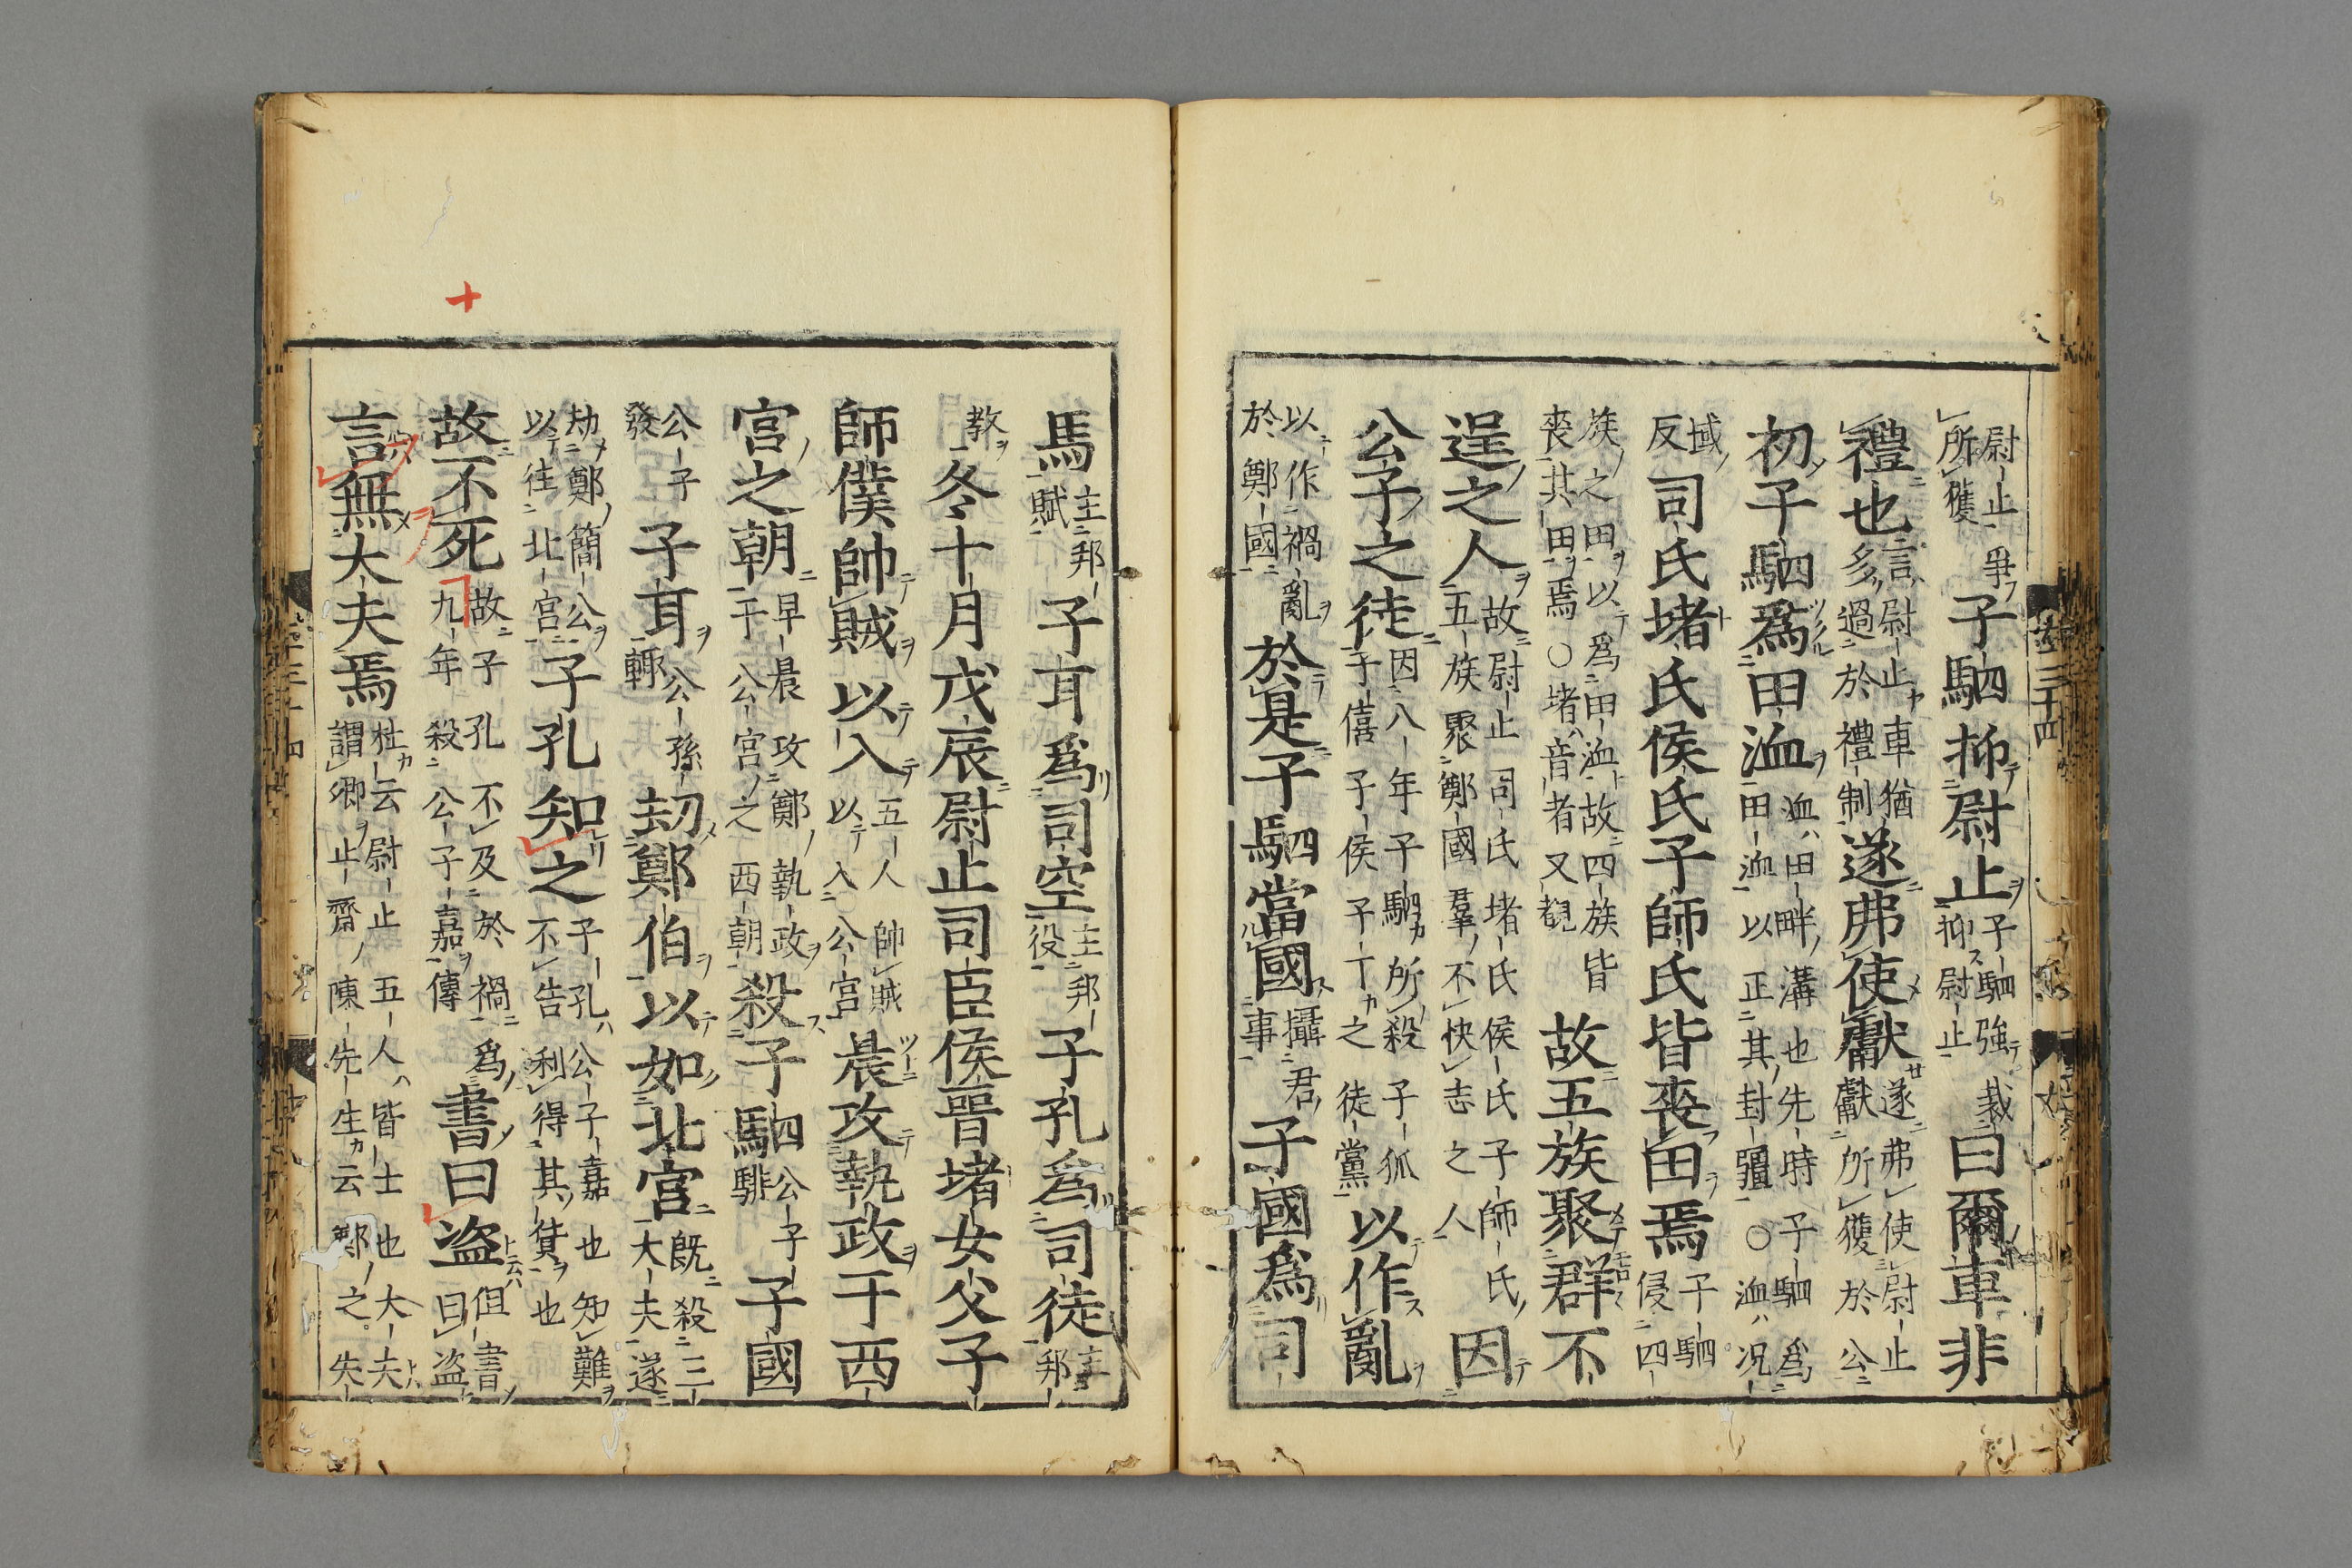 尉止所獲爭子駟抑尉止子駟強抑尉止裁曰爾車非
禮也言尉止車猶多過於禮制遂弗使獻遂弗使尉止獻所獲於公
初子駟爲田洫洫田畔溝也先時子駟爲田洫以正其封疆○洫況
域反司氏堵氏侯氏子師氏皆喪田焉子駟侵四
族之田以爲田洫故四族皆喪其田焉○堵音者又觀故五族聚群不
逞之人故尉止司氏堵氏侯氏子師氏五族聚鄭國羣不快志之人因
公子之徒因八年子駟所殺子狐子僖子侯子丁之徒黨以作亂
以作禍亂於鄭國於是子駟當國攝君事子國爲司
馬主邦賦子耳爲司空主邦役子孔爲司徒主邦
教冬十月戊辰尉止司臣侯晉堵女父子
師僕帥賊以入五人帥賊以入公宮晨攻執政于西
宮之朝早晨攻鄭執政于公宮之西朝殺子駟公子騑子國
公子發子耳公孫輒劫鄭伯以如北宮既殺三大夫遂
劫鄭簡公以往北宮子孔知之子孔公子嘉也知難不告利得其貨也
故不死故子孔不及於禍爲九年殺公子嘉傳書曰盗但書曰盗
言無大夫焉杜云尉止五人皆士也大夫謂卿止齋陳先生云鄭之失